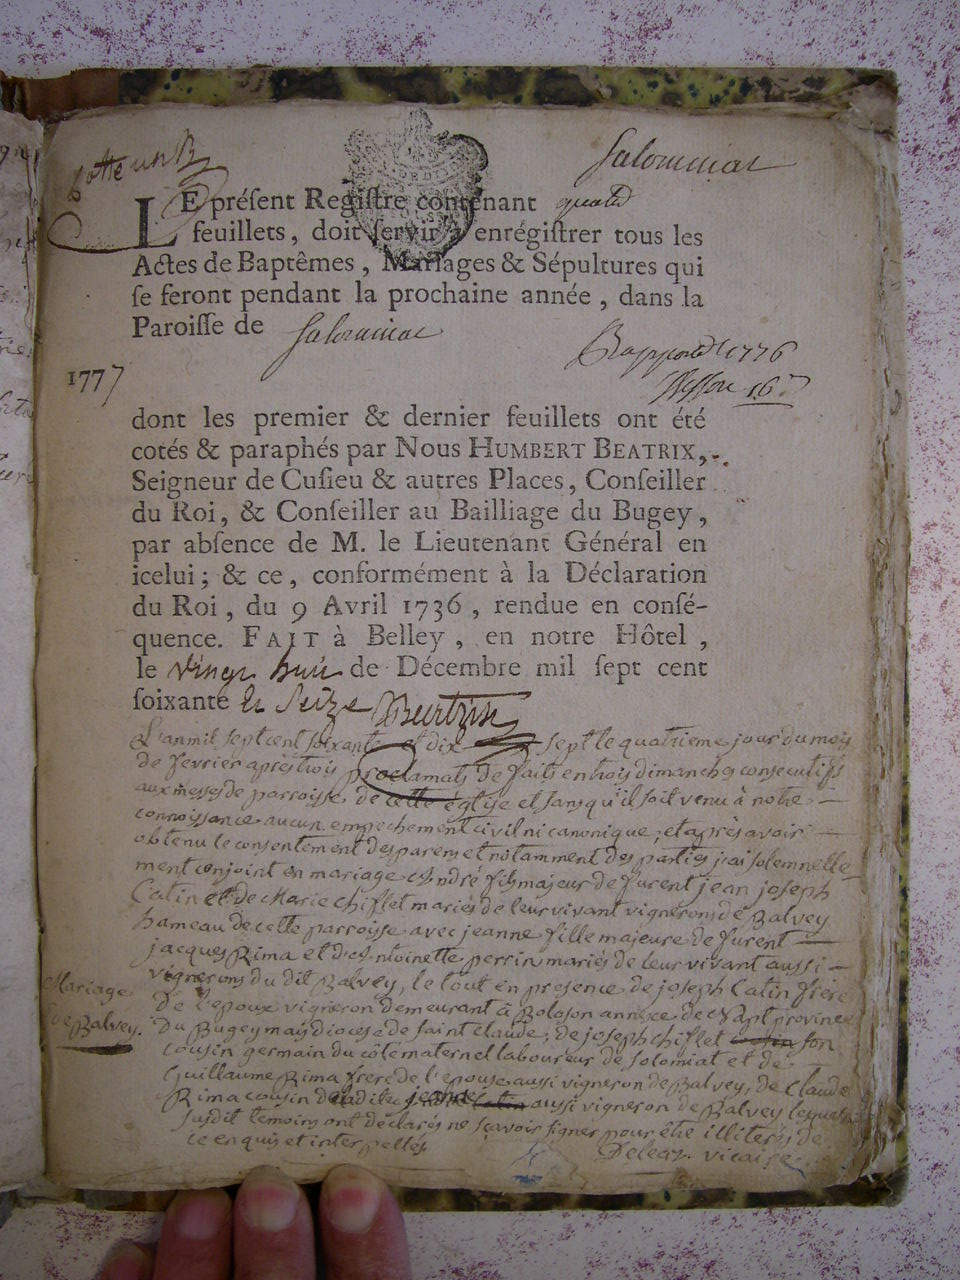 Cotte un B
Salomiat
LE préſent Regiſtre contenant
feuillets, doit ſervir à enrégiſtrer tous les
Actes de Baptêmes, Mariages & Sépultures qui
ſe feront pendant la prochaine année, dans la
Paroiſſe de Salomiat
1777
16
dont les premier & dernier feuillets ont été
cotés & paraphés par Nous HUMBERT BEATRIX,
Seigneur de Cuſieu & autres Places, Conſeiller
du Roi, & Conſeiller au Bailliage du Bugey,
par abſence de M. le Lieutenant Général en
icelui; & ce, conformément à la Déclaration
du Roi, du 9 Avril 1736, rendue en conſé-
quence. FAIT à Belley, en notre Hôtel,
le vingt huit de Décembre mil ſept cent
ſoixante et Seize Beatrix
L'an mil sept cent soixante et dix sept le quatrieme jour du mois
de fevrier après trois proclamats de faits en trois dimanches consecutifs
aux messes de parroisse de cette église et sans qu'il soit venu à notre
connoissance aucun empechement civil ni canonique, et après avoir
obtenu le consentement des parens et notamment des parties j'ai solemnelle
ment conjoint en mariage André fils majeur de furent jean joseph
Catin et de Marie Chiflet mariés de leur vivant vignerons de Balvey
hameau de cette parroisse avec jeanne fille majeure de furent
jacques Rima et d'Antoinette perrin mariés de leur vivant aussi
vignerons du dit Balvey, le tout en presence de joseph Catin frère
de l'epoux vigneron demeurant à Boloson annexe de province
Du Bugey mais diocese de saint Claude, de joseph chiflet son
cousin germain du côté maternel laboureur de solomiat et de
Guillaume Rima frere de l'epouse aussi vigneron de Balvey, de Claude
Rima cousin de ladite jeanne aussi vigneron de Balvey lesquels
susdit temoins ont declarés ne sçavoir signer pour être illiterés de
ce enquis et interpellés Deleaz vicaire
Mariage
de Balvey.